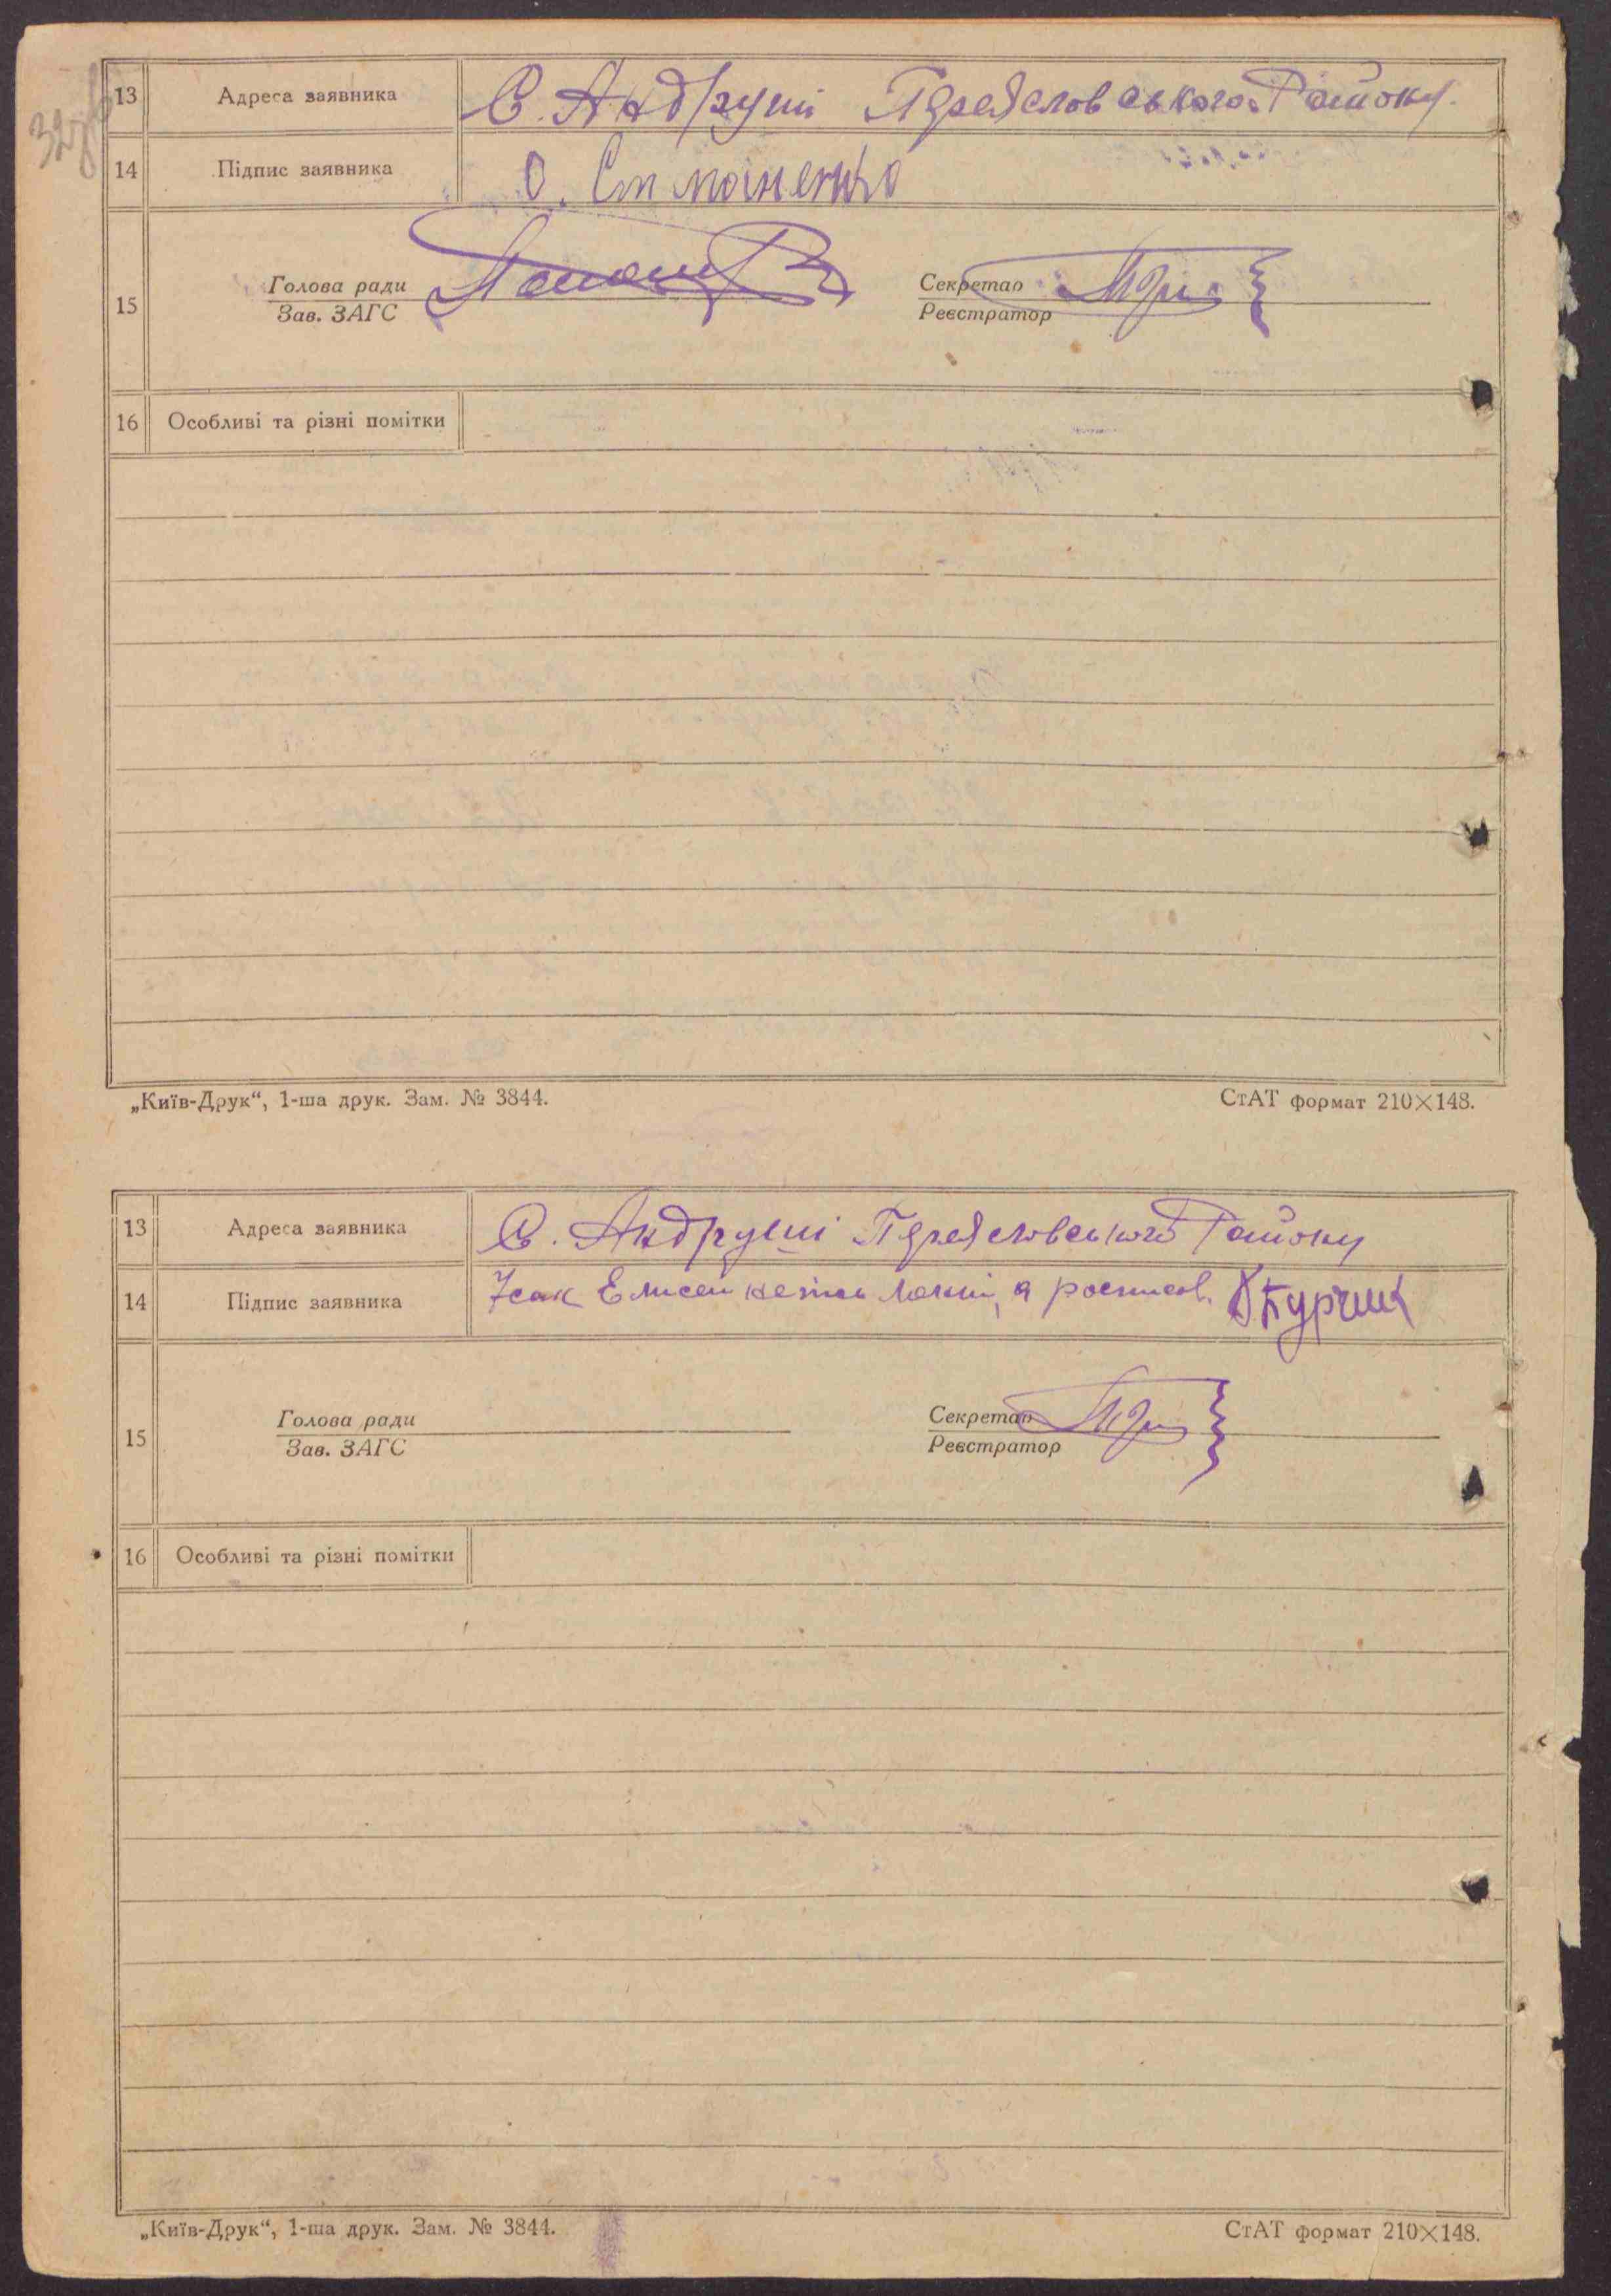 32зв
13 Адреса заявника С. Андруші Переяславського Району.
14 Підпис заявника О. Симоненко
Голова ради Секретар
15
Зав. ЗАГС Реєстратор
16 Особливі та різні помітки
„Київ-Друк“, 1-ша друк. Зам. № 3844. СтАТ формат 210×148.
13 Адреса заявника С. Андруші Переяславського Району
14 Підпис заявника Усак Елисей а росписав. Курчик
Голова ради Секретар
15
Зав. ЗАГС Реєстратор
16 Особливі та різні помітки
„Київ-Друк“, 1-ша друк. Зам. № 3844. СтАТ формат 210×148.